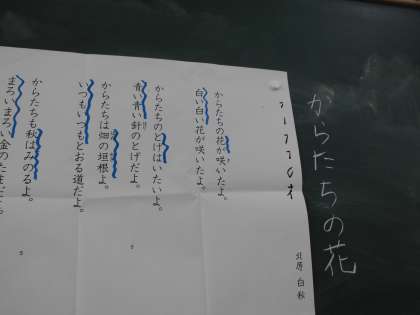 からたちの花
北原 白秋
からたちの花が咲いたよ。
白い白い花が咲いたよ。
からたちのとげはいたいよ。
青い青い針のとげだよ。
からたちは畑の垣根よ。
いつもいつもとおる道だよ。
からたちも秋はみのるよ。
まろいまろい金のたまだよ。